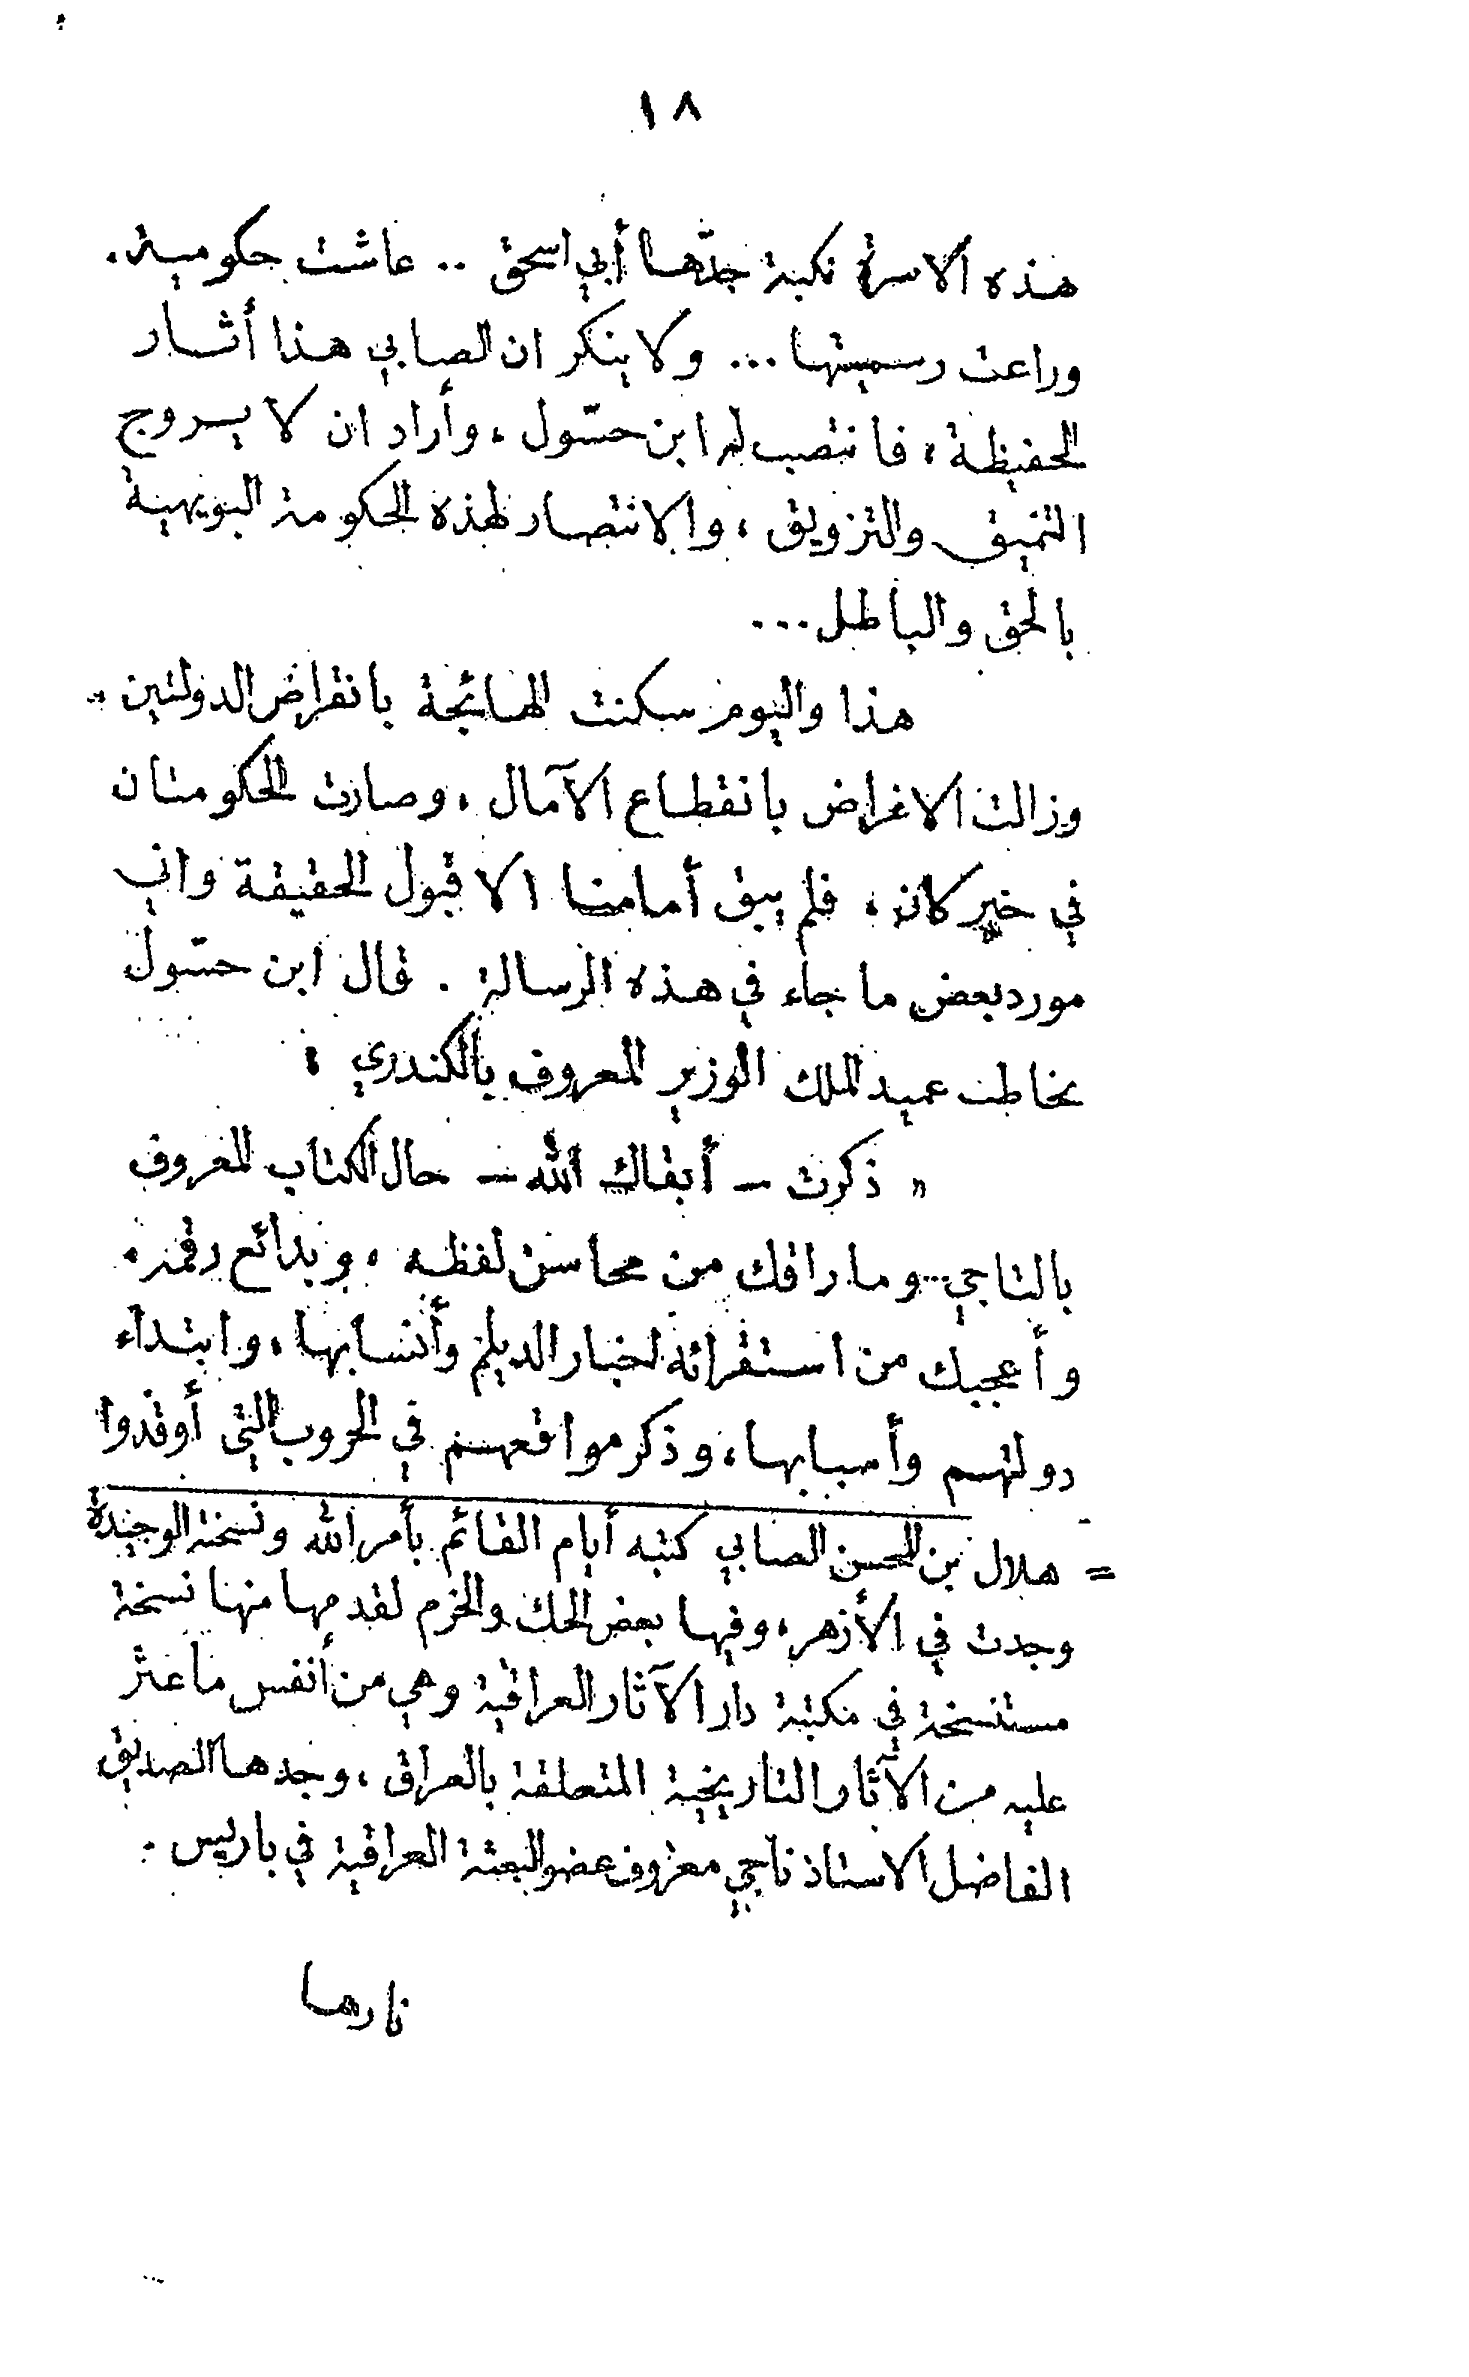 ١٨
هذه الاسرة نكبة جدّها أبي اسحق .. عاشت حكومية.
وراعت رسميتها ... ولا ينكر ان الصابي هذا أثار
الحفيظة، فانتصب له ابن حسّول، وأراد ان لا يروج
التنميق والتزويق، والانتصار لهذه الحكومة البويهية
بالحق والباطل...
هذا واليوم سكنت الهائجة بانقراض الدولتين.
وزالت الاغراض بانقطاع الآمال، وصارت الحكومتان
في خبر كان، فلم يبق أمامنا الا قبول الحقيقة واني
مورد بعض ما جاء في هذه الرسالة. قال ابن حسّول
يخاطب عميد الملك الوزير المعروف بالكندري:
" ذكرت - أبقاك الله - حال الكتاب المعروف
بالتاجي.. وما راقك من محاسن لفظه، وبدائع رقمه.
وأعجبك من استقرائه لخبار الديلم وأنسابها، وابتداء
دولتهم وأسبابها، وذكر مواقعهم في الحروب التي أوقدوا
= هلال بن المحسن الصابي كتبه أيام القائم بأمر الله ونسخته الوحيدة
وجدت في الأزهر، وفيها بعض الحك والخرم لقدمها منها نسخة
مستنسخة في مكتبة دار الآثار العراقية وهي من أنفس ما عثر
عليه من الآثار التاريخية المتعلقة بالعراق، وجدها الصديق
الفاضل الاستاذ ناجي معروف عضو البعثة العراقية في باريس.
نارها